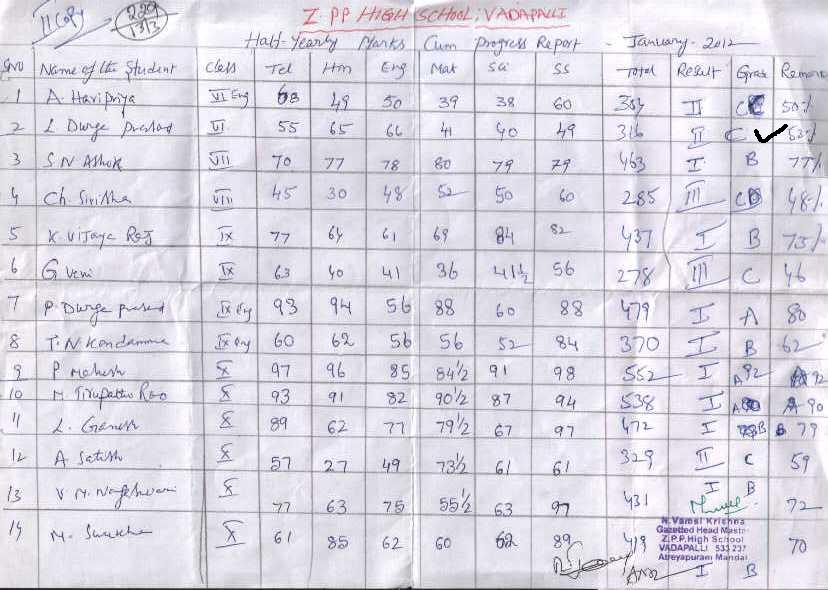 II Copy
229
13/3
Z PP HIGH SCHOOL; VADAPALLI
Half-Yearly Marks Cum Progress Report - January-2012
SNO Name of the Student Class Tel Hin Eng Mat Sci SS Total Result Grade Remark
1 A. Haripriya VI Eng 68 49 50 39 38 60 304 II C 50%
2 L Durga prasad VI 55 65 66 41 40 49 316 II C ✓ 53%
3 S N Ashok VII 70 77 78 80 79 79 463 I B 77%
4 Ch. Sirisha VIII 45 30 48 52 50 60 285 III C 48%
5 K. Vijaya Raj IX 77 64 61 69 84 82 437 I B 73%
6 G Veni IX 63 40 41 36 41½ 56 278 III C 46
7 P. Durga prasad IX Eng 93 94 56 88 60 88 479 I A 80
8 T. N Kondamma IX Eng 60 62 56 56 52 84 370 I B 62
9 P Mahesh X 97 96 85 84½ 91 98 552 I A 92 A 92
10 M. Tirupathi Rao X 93 91 82 90½ 87 94 538 I A A-90
11 L. Ganesh X 89 62 77 79½ 67 97 472 I B B 79
12 A Satish X 57 27 49 73½ 61 61 329 II C 59
13 V M. Nageshwari X 77 63 75 55½ 63 97 431 I B 72
14 M. X 61 85 62 60 62 89 419 I B 70
N. Vamsi Krishna
Gazetted Head Master
Z.P.P.High School
VADAPALLI 533 237
Atreyapuram Mandal